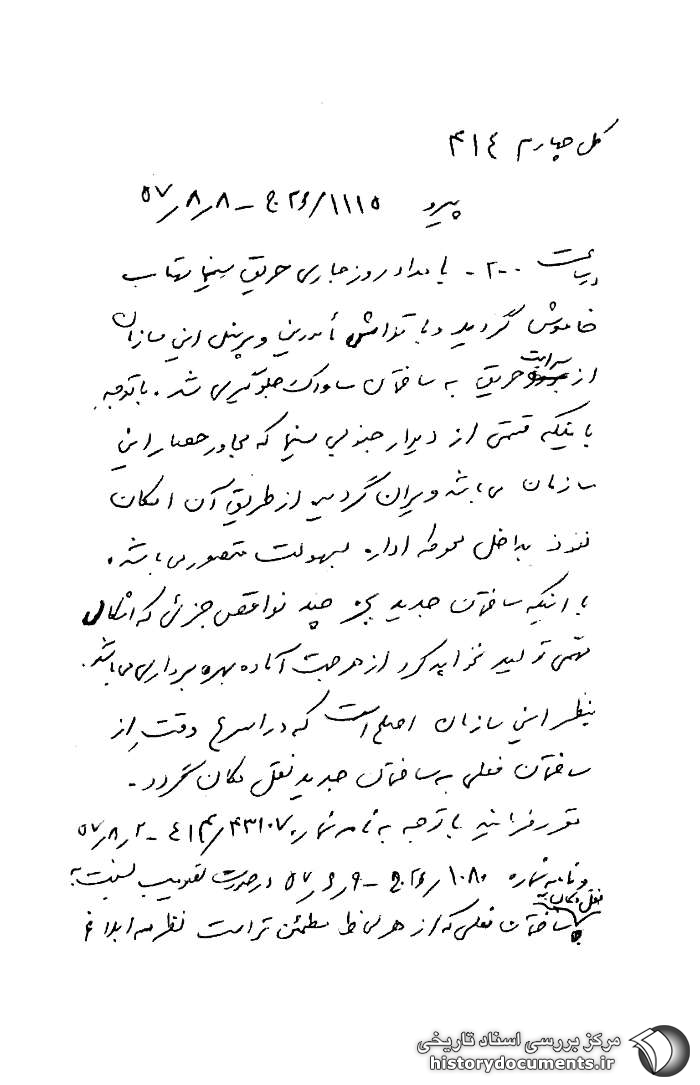 کل چهارم ۴۱٤
پیرو ۱۱۱۵/۲۶ﻫ ج - ۵۷/۸/۸
۲۰۰ - بامداد روز جاری حریق سینما مهتاب
خاموش گردید و با تلاش مأمورین و پرسنل این سازمان
از سرایت حریق به ساختمان ساواک جلوگیری شد. باتوجه
باینکه قسمتی از دیوار جنوبی سینما که مجاور حصار این
سازمان می باشد ویران گردید از طریق آن امکان
نفوذ بداخل محوطه اداره بسهولت متصور می باشد.
با اینکه ساختمان جدید بجز چند نواقص جزئی که اشکال
مهمی تولید نخواهد کرد از هر جهت آماده بهره برداری می باشد.
بنظر این سازمان اصلح است که در اسرع وقت از
ساختمان فعلی به ساختمان جدید نقل مکان گردد -
مقرر فرمائید با توجه به نامه شماره ۴۳۱۰۷/۴۱٤ - ۵۷/۸/۲
و نامه شماره ۱۰۸۰/۲۶ﻫ ج - ۵۷/۶/۹ در صورت تصویب نسبت به
نقل مکان به
ساختمان فعلی که از هر لحاظ مطمئن تر است نظریه ابلاغ
مرکز بررسی اسناد تاریخی
historydocuments.ir